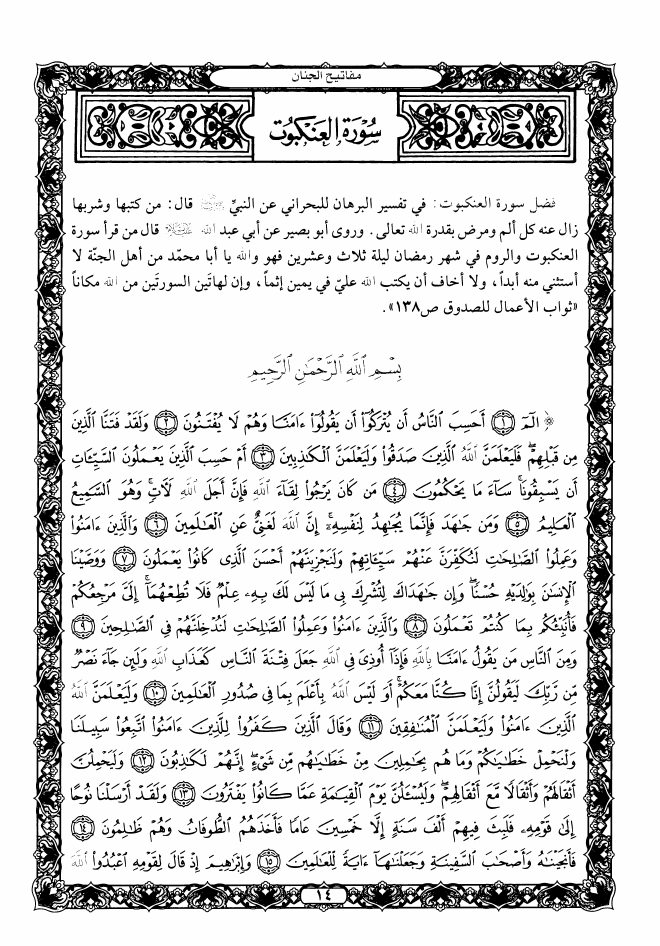 مفاتيح الجنان
سُورَةُ العَنكبُوتِ
فضل سورة العنكبوت: في تفسير البرهان للبحراني عن النبيّ ﷺ قال: من كتبها وشربها
زال عنه كل ألم ومرض بقدرة الله تعالى. وروى أبو بصير عن أبي عبد الله قال من قرأ سورة
العنكبوت والروم في شهر رمضان ليلة ثلاث وعشرين فهو والله يا أبا محمّد من أهل الجنة لا
أستثني منه أبداً، ولا أخاف أن يكتب الله عليّ في يمين إثماً، وإن لهاتَين السورتَين من الله مكاناً
«ثواب الأعمال للصدوق ص١٣٨».
بِسْمِ ٱللَّهِ ٱلرَّحْمَٰنِ ٱلرَّحِيمِ
﴿ الٓمٓ ١ أَحَسِبَ ٱلنَّاسُ أَن يُتْرَكُوٓا۟ أَن يَقُولُوٓا۟ ءَامَنَّا وَهُمْ لَا يُفْتَنُونَ ٢ وَلَقَدْ فَتَنَّا ٱلَّذِينَ
مِن قَبْلِهِمْ ۖ فَلَيَعْلَمَنَّ ٱللَّهُ ٱلَّذِينَ صَدَقُوا۟ وَلَيَعْلَمَنَّ ٱلْكَٰذِبِينَ ٣ أَمْ حَسِبَ ٱلَّذِينَ يَعْمَلُونَ ٱلسَّيِّـَٔاتِ
أَن يَسْبِقُونَا ۚ سَآءَ مَا يَحْكُمُونَ ٤ مَن كَانَ يَرْجُوا۟ لِقَآءَ ٱللَّهِ فَإِنَّ أَجَلَ ٱللَّهِ لَـَٔاتٍ ۚ وَهُوَ ٱلسَّمِيعُ
ٱلْعَلِيمُ ٥ وَمَن جَٰهَدَ فَإِنَّمَا يُجَٰهِدُ لِنَفْسِهِۦٓ ۚ إِنَّ ٱللَّهَ لَغَنِىٌّ عَنِ ٱلْعَٰلَمِينَ ٦ وَٱلَّذِينَ ءَامَنُوا۟
وَعَمِلُوا۟ ٱلصَّٰلِحَٰتِ لَنُكَفِّرَنَّ عَنْهُمْ سَيِّـَٔاتِهِمْ وَلَنَجْزِيَنَّهُمْ أَحْسَنَ ٱلَّذِى كَانُوا۟ يَعْمَلُونَ ٧ وَوَصَّيْنَا
ٱلْإِنسَٰنَ بِوَٰلِدَيْهِ حُسْنًا ۖ وَإِن جَٰهَدَاكَ لِتُشْرِكَ بِى مَا لَيْسَ لَكَ بِهِۦ عِلْمٌ فَلَا تُطِعْهُمَآ ۚ إِلَىَّ مَرْجِعُكُمْ
فَأُنَبِّئُكُم بِمَا كُنتُمْ تَعْمَلُونَ ٨ وَٱلَّذِينَ ءَامَنُوا۟ وَعَمِلُوا۟ ٱلصَّٰلِحَٰتِ لَنُدْخِلَنَّهُمْ فِى ٱلصَّٰلِحِينَ ٩
وَمِنَ ٱلنَّاسِ مَن يَقُولُ ءَامَنَّا بِٱللَّهِ فَإِذَآ أُوذِىَ فِى ٱللَّهِ جَعَلَ فِتْنَةَ ٱلنَّاسِ كَعَذَابِ ٱللَّهِ وَلَئِن جَآءَ نَصْرٌ
مِّن رَّبِّكَ لَيَقُولُنَّ إِنَّا كُنَّا مَعَكُمْ ۚ أَوَلَيْسَ ٱللَّهُ بِأَعْلَمَ بِمَا فِى صُدُورِ ٱلْعَٰلَمِينَ ١٠ وَلَيَعْلَمَنَّ ٱللَّهُ
ٱلَّذِينَ ءَامَنُوا۟ وَلَيَعْلَمَنَّ ٱلْمُنَٰفِقِينَ ١١ وَقَالَ ٱلَّذِينَ كَفَرُوا۟ لِلَّذِينَ ءَامَنُوا۟ ٱتَّبِعُوا۟ سَبِيلَنَا
وَلْنَحْمِلْ خَطَٰيَٰكُمْ وَمَا هُم بِحَٰمِلِينَ مِنْ خَطَٰيَٰهُم مِّن شَىْءٍ ۖ إِنَّهُمْ لَكَٰذِبُونَ ١٢ وَلَيَحْمِلُنَّ
أَثْقَالَهُمْ وَأَثْقَالًا مَّعَ أَثْقَالِهِمْ ۖ وَلَيُسْـَٔلُنَّ يَوْمَ ٱلْقِيَٰمَةِ عَمَّا كَانُوا۟ يَفْتَرُونَ ١٣ وَلَقَدْ أَرْسَلْنَا نُوحًا
إِلَىٰ قَوْمِهِۦ فَلَبِثَ فِيهِمْ أَلْفَ سَنَةٍ إِلَّا خَمْسِينَ عَامًا فَأَخَذَهُمُ ٱلطُّوفَانُ وَهُمْ ظَٰلِمُونَ ١٤
فَأَنجَيْنَٰهُ وَأَصْحَٰبَ ٱلسَّفِينَةِ وَجَعَلْنَٰهَآ ءَايَةً لِّلْعَٰلَمِينَ ١٥ وَإِبْرَٰهِيمَ إِذْ قَالَ لِقَوْمِهِ ٱعْبُدُوا۟ ٱللَّهَ
١٤